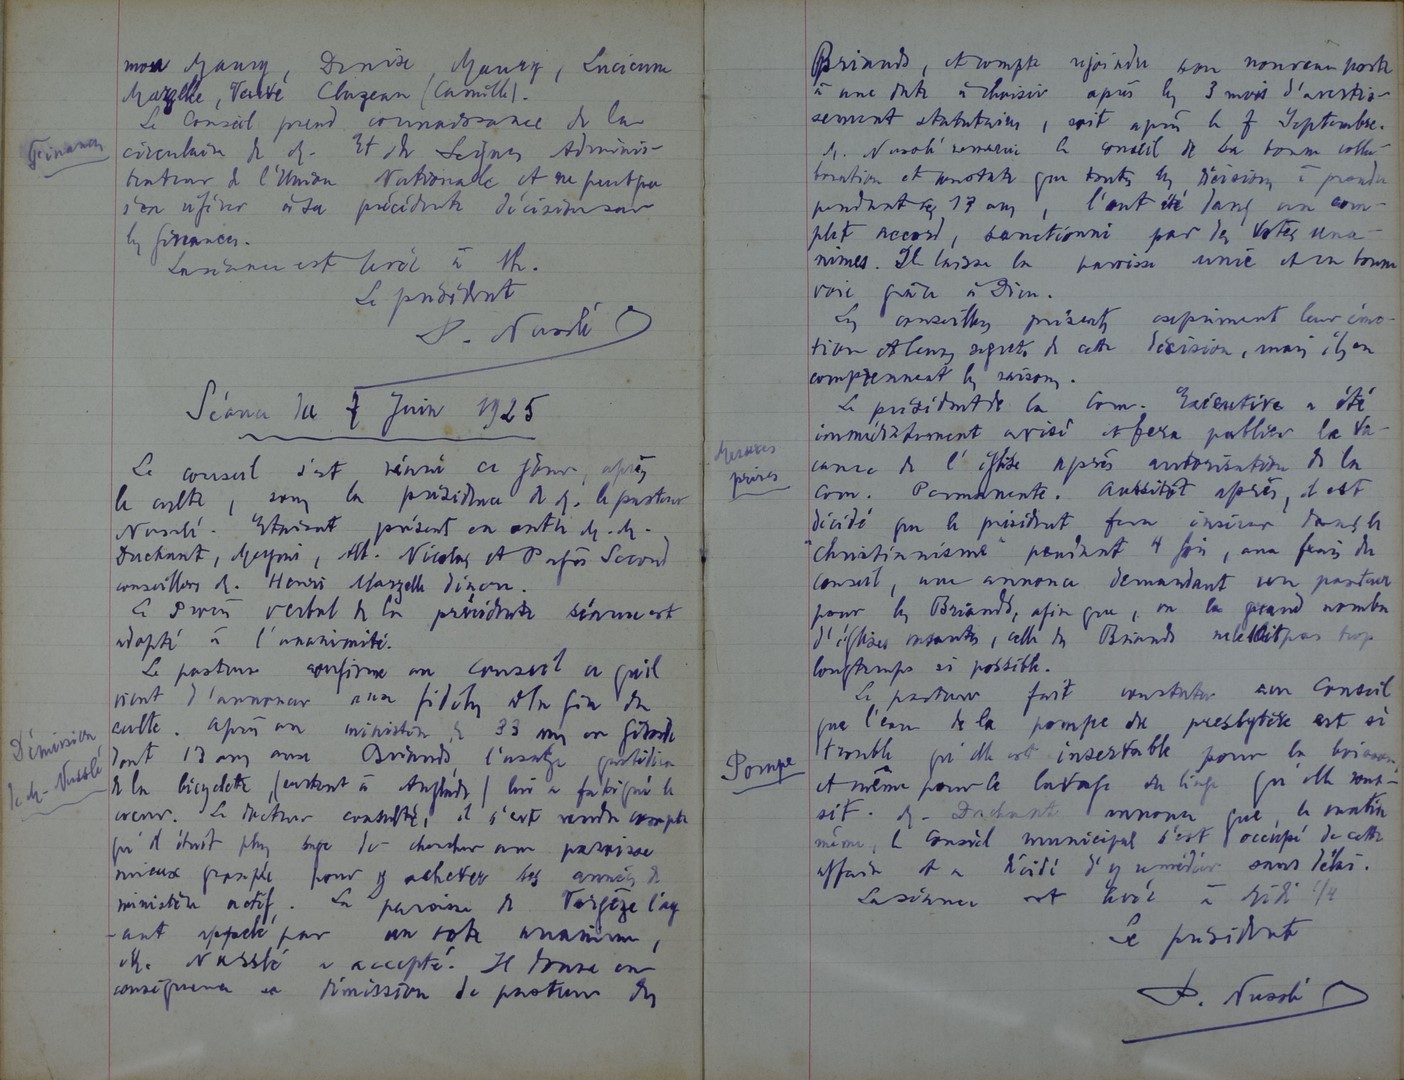 mon Maury, Denise Maury, Lucienne
Mazelle, Veuve Cluzeau (Camille).
Le Conseil prend connaissance de la
Finances
circulaire de M. Et de Seynes Adminis-
trateur de l'Union Nationale et ne peut que
s'en référer à sa précédente décision sur
les finances.
La séance est levée à 11h.
Le président
P. Nusslé
Séance du 7 Juin 1925
Le conseil s'est réuni ce jour, après
le culte, sous la présidence de M. le pasteur
Nusslé. Etaient présent en outre M. M.
Duchant, Meymi, Alb. Nicolas et Pagès Second
conseillers M. Henri Mazelle diacre.
Le Procès verbal de la précédente séance est
adopté à l'unanimité.
Le pasteur confirme au Conseil ce qu'il
vient d'annoncer aux fidèles à la fin du
Démission
de M. Nusslé
culte. Après un ministère de 33 ans en Gironde
dont 17 ans aux Briands l'usage quotidien
de la bicyclette (surtout à Anglade) lui a fatigué le
coeur. Le docteur consulté, il s'est rendu compte
qu'il était plus sage de chercher une paroisse
mieux groupée pour y achever ses années de
ministère actif. La paroisse de Vergèze l'ay
-ant appelé par un vote unanime,
M. Nusslé a accepté. Il donne en
conséquence sa démission de pasteur des
Briands, et compte rejoindre son nouveau poste
à une date à choisir après les 3 mois d'avertis-
sement statutaires, soit après le 7 Septembre.
M. Nusslé remercie le conseil de sa bonne colla-
boration et constate que toutes les décisions à prendre
pendant ces 17 ans, l'ont été dans un com-
plet accord, sanctionné par des votes una-
nimes. Il laisse la paroisse unie et en bonne
voie grâce à Dieu.
Les conseillers présents expriment leur émo-
tion et leurs regrets de cette décision, mais ils en
comprennent les raisons.
Le président de la Com. Exécutive a été
Mesures
prises
immédiatement avisé et fera publier la va-
cance de l'église après autorisation de la
Com. Permanente. Aussitôt après, il est
décidé que le président fera insérer dans le
"Christianisme" pendant 4 fois, aux frais du
Conseil, une annonce demandant un pasteur
pour les Briands, afin que, vu le grand nombre
d'églises vacantes, celle des Briands ne le soit pas trop
longtemps si possible.
Le pasteur fait constater au Conseil
que l'eau de la pompe du presbytère est si
Pompe
trouble qu'elle est inservable pour la boisson
et même pour le lavage du linge qu'elle rous-
sit. M. Duchant annonce que, le matin
même, le Conseil municipal s'est occupé de cette
affaire et a décidé d'y remédier sans délai.
La séance est levée à midi 1/4
Le président
P. Nusslé